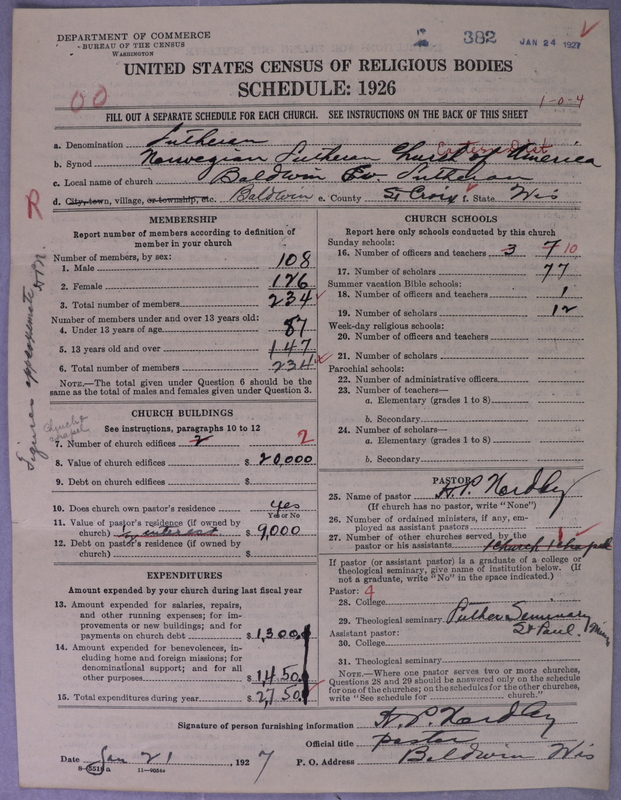 DEPARTMENT OF COMMERCE
BUREAU OF THE CENSUS
WASHINGTON
382
JAN 24 1927
UNITED STATES CENSUS OF RELIGIOUS BODIES
SCHEDULE: 1926
00
1-0-4
FILL OUT A SEPARATE SCHEDULE FOR EACH CHURCH. SEE INSTRUCTIONS ON THE BACK OF THIS SHEET
a. Denomination Lutheran
b. Synod Norwegian Lutheran Church of America
c. Local name of church Baldwin Ev. Lutheran
d. City, town, village, or township, etc. Baldwin e. County St Croix f. State Wis
MEMBERSHIP
Report number of members according to definition of
member in your church
Number of members, by sex:
1. Male 108
2. Female 126
3. Total number of members 234
Number of members under and over 13 years old:
4. Under 13 years of age 87
5. 13 years old and over 147
6. Total number of members 234
NOTE.—The total given under Question 6 should be
same as the total of males and females given under Question 3.
Figures approximate
CHURCH BUILDINGS
See instructions, paragraphs 10 to 12
Church
chapel
7. Number of church edifices 2 2
8. Value of church edifices $ 20,000
9. Debt on church edifices $
10. Does church own pastor's residence yes
Yes or No
11. Value of pastor's residence (if owned by
church) $ 9,000
12. Debt on pastor's residence (if owned by
church) $
EXPENDITURES
Amount expended by your church during last fiscal year
13. Amount expended for salaries, repairs,
and other running expenses; for im-
provements or new buildings; and for
payments on church debt $ 1,300
14. Amount expended for benevolences, in-
cluding home and foreign missions; for
denominational support; and for all
other purposes $ 1,450
15. Total expenditures during year $ 2,750
CHURCH SCHOOLS
Report here only schools conducted by this church
Sunday schools:
16. Number of officers and teachers 3 7 10
17. Number of scholars 77
Summer vacation Bible schools:
18. Number of officers and teachers 1
19. Number of scholars 12
Week-day religious schools:
20. Number of officers and teachers
21. Number of scholars
Parochial schools:
22. Number of administrative officers
23. Number of teachers—
a. Elementary (grades 1 to 8)
b. Secondary
24. Number of scholars—
a. Elementary (grades 1 to 8)
b. Secondary
PASTOR
25. Name of pastor H. P. Nordby
(If church has no pastor, write "None")
26. Number of ordained ministers, if any, em-
ployed as assistant pastors
27. Number of other churches served by the
pastor or his assistants 1 church 1 chapel
If pastor (or assistant pastor) is a graduate of a college or
theological seminary, give name of institution below. (If
not a graduate, write "No" in the space indicated.)
Pastor: 4
28. College
29. Theological seminary Luther Seminary
St Paul, Minn
Assistant pastor:
30. College
31. Theological seminary
NOTE.—Where one pastor serves two or more churches,
Questions 28 and 29 should be answered only on the schedule
for one of the churches; on the schedules for the other churches,
write "See schedule for church."
Signature of person furnishing information H. P. Nordby
Official title pastor
Date Jan 21, 1927 P. O. Address Baldwin Wis
8-5518a 11-9054a